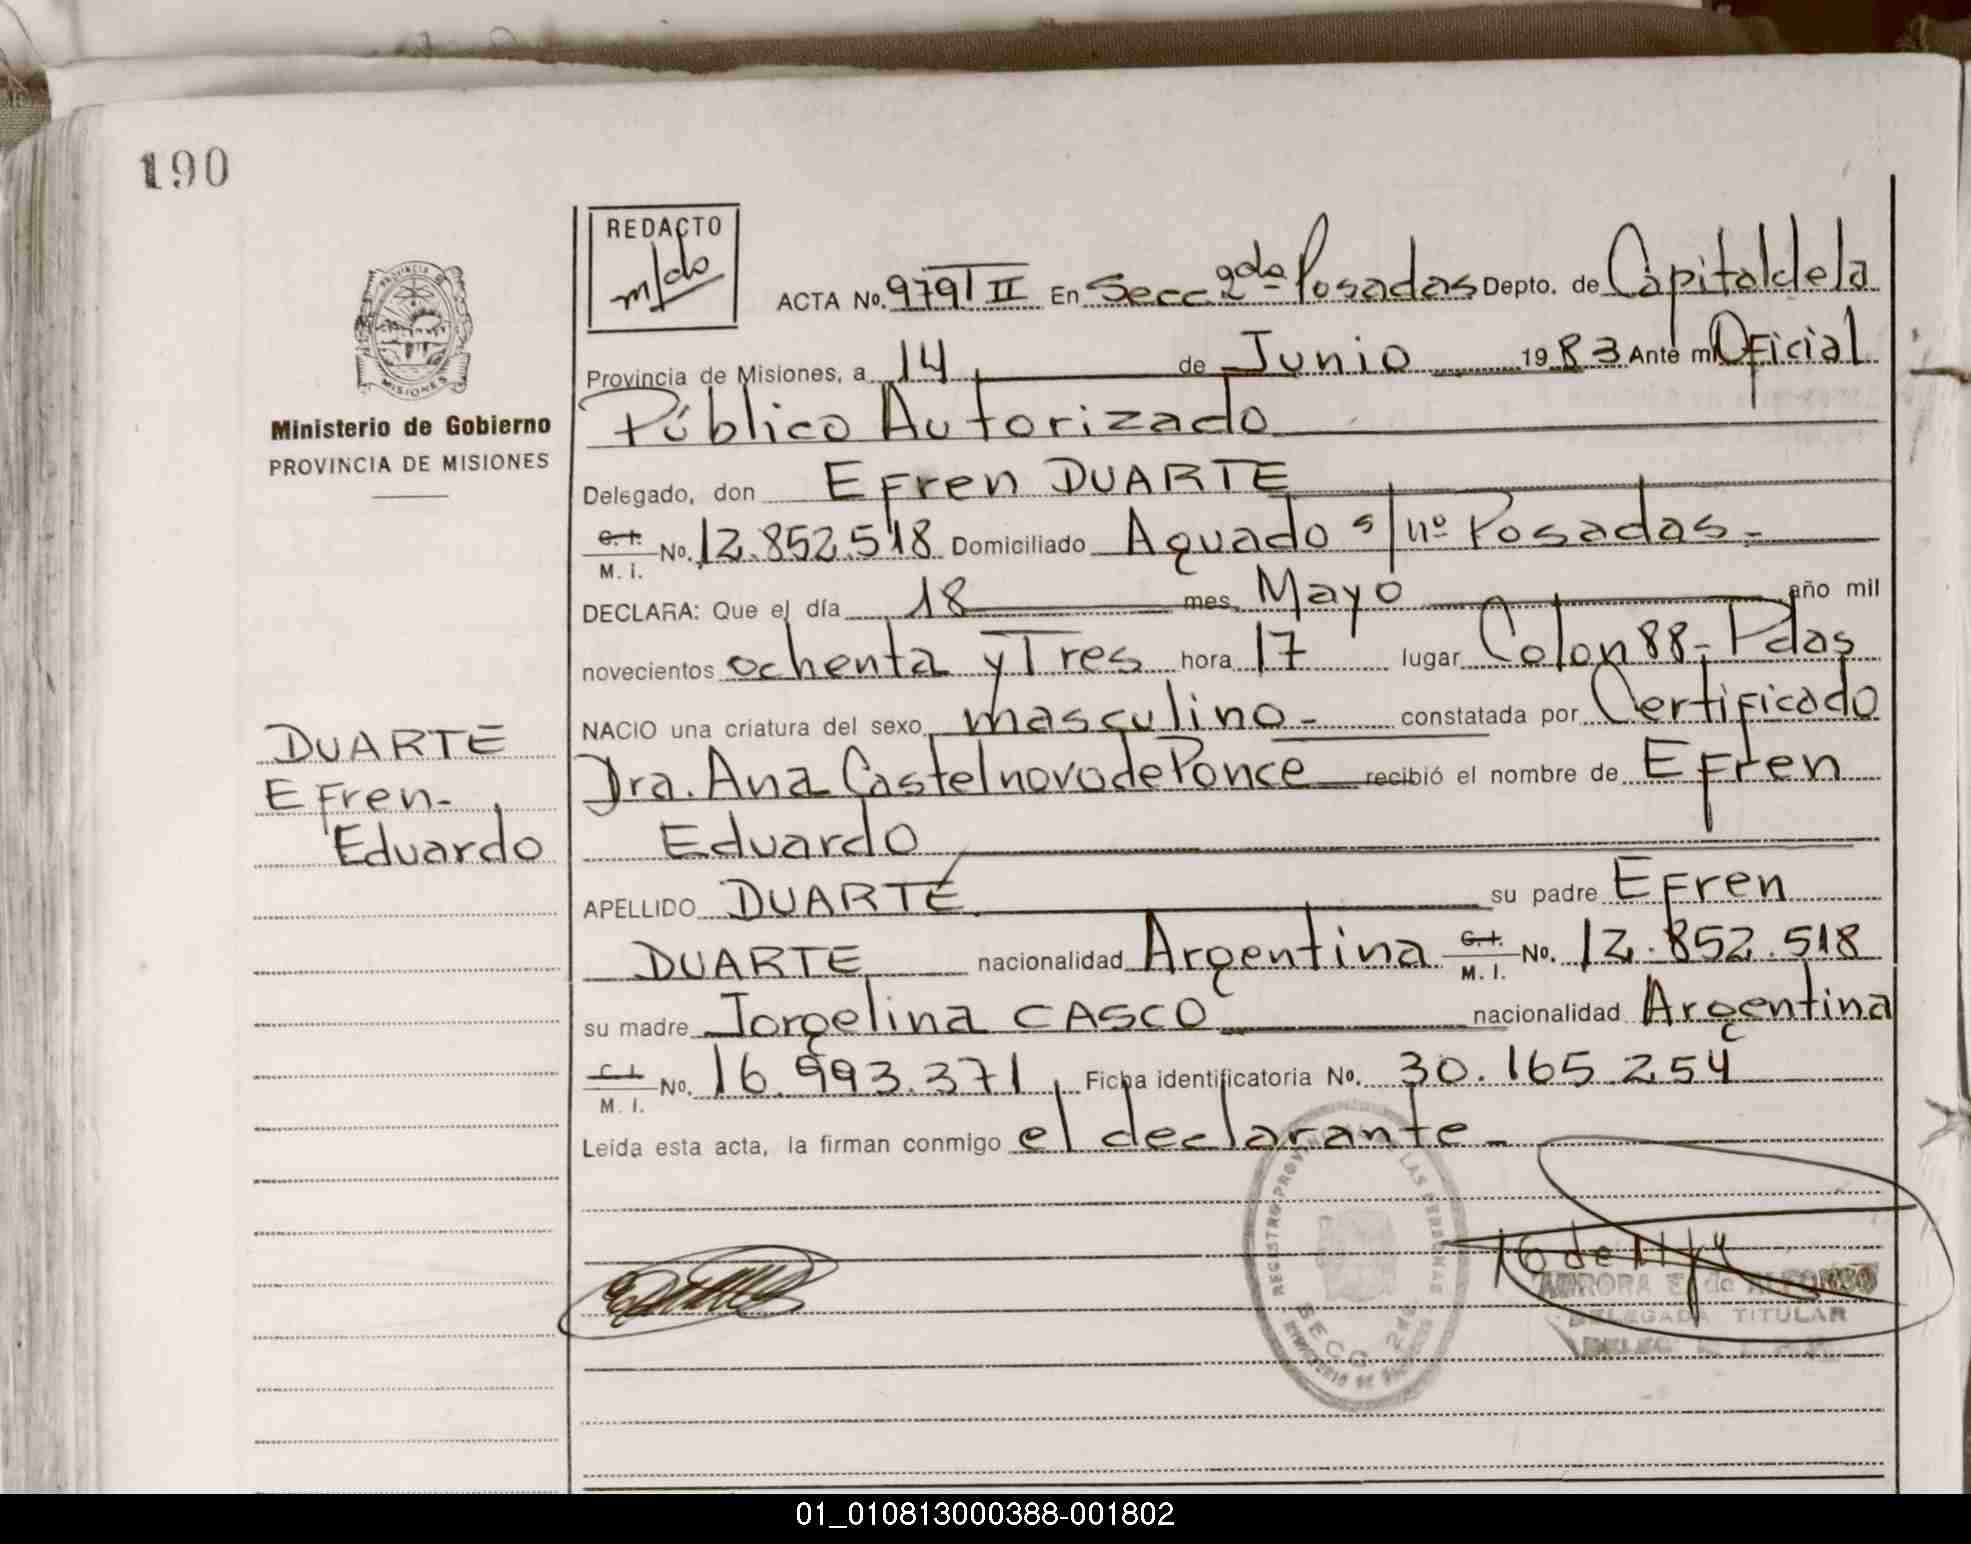 190
REDACTO
m/do
PROVINCIA DE
MISIONES
Ministerio de Gobierno
PROVINCIA DE MISIONES
ACTA No. 979 T II En Secc. 2da Posadas Depto. de Capital de la
Provincia de Misiones, a 14 de Junio 1983 Ante mi Oficial
Público Autorizado
Delegado, don Efren DUARTE
C. I. M. I. No. 12.852.518 Domiciliado Aguado s/nº Posadas.-
DECLARA: Que el día 18 mes Mayo año mil
novecientos ochenta y Tres hora 17 lugar Colon 88 - Pdas
NACIO una criatura del sexo masculino - constatada por Certificado
Dra. Ana Castelnovo de Ponce recibió el nombre de Efren
Eduardo
APELLIDO DUARTE su padre Efren
DUARTE nacionalidad Argentina C. I. M. I. No. 12.852.518
su madre Jorgelina CASCO nacionalidad Argentina
C. I. M. I. No. 16.993.371 Ficha identificatoria No. 30.165.254
Leída esta acta, la firman conmigo el declarante -
DUARTE
Efren-
Eduardo
REGISTRO PROVINCIAL DE LAS PERSONAS
SECC. 2da
AURORA E. de
DELEGADA TITULAR
01_010813000388-001802